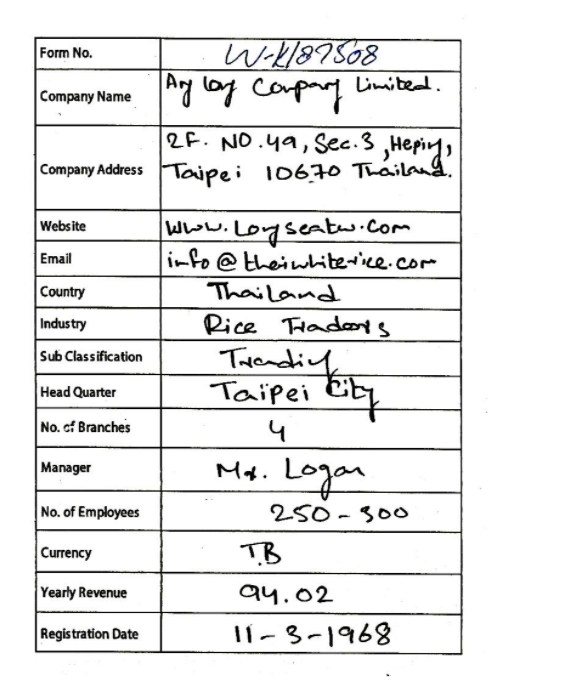 Form No. W-K/87508
Company Name Ag loy Company Limited.
Company Address 2F. NO.49, Sec.3, Hepiy,
Taipei 10670 Thailand.
Website www.Loyseatw.com
Email info@theiwhiterice.com
Country Thailand
Industry Rice Traders
Sub Classification Trendiy
Head Quarter Taipei City
No. of Branches 4
Manager Mr. Logan
No. of Employees 250-300
Currency T.B
Yearly Revenue 94.02
Registration Date 11-3-1968